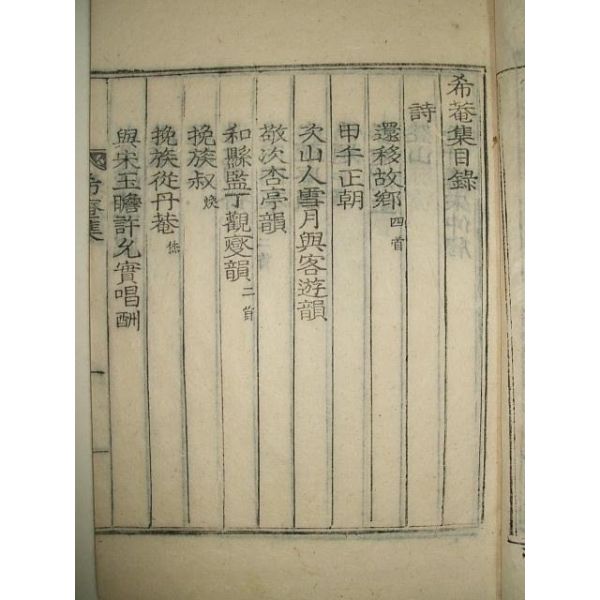 希菴集目錄
詩
還移故鄉 四首
甲午正朝
次山人雪月與客遊韻
敬次杏亭韻
和縣監丁觀燮韻 二首
挽族叔
挽族從丹菴
與宋玉瞻許允實唱酬
希菴集
一